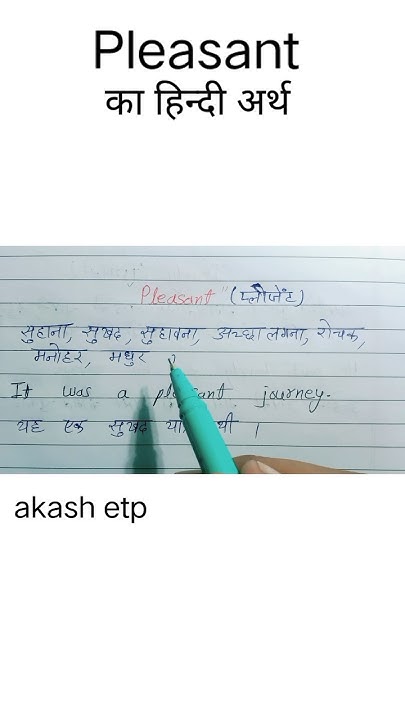 Pleasant
का हिन्दी अर्थ
Pleasant (प्लीजेंट)
सुहाना, सुखद, सुहावना, अच्छा लगना, रोचक,
मनोहर, मधुर
It was a pleasant journey.
यह एक सुखद थी ।
akash etp